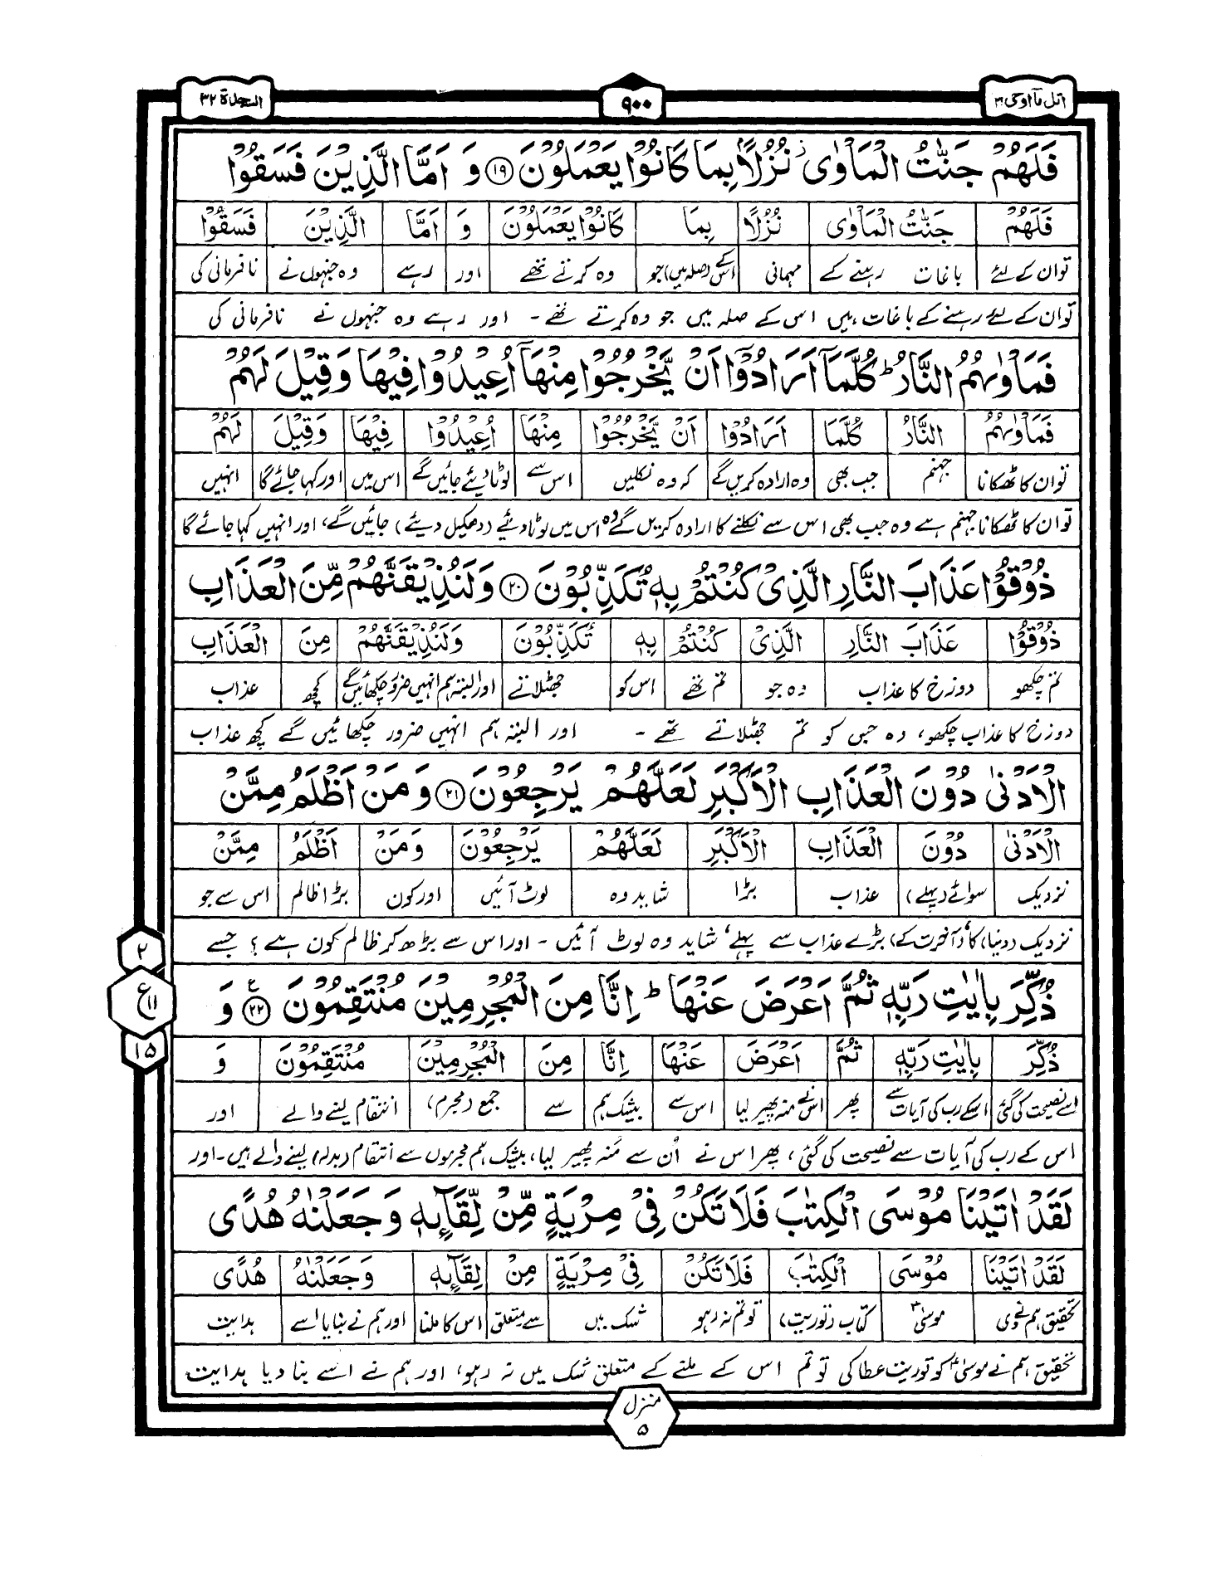 اتل مآ اوحی ۲۱
۹۰۰
السجدة ۳۲
فَلَهُمْ جَنّٰتُ الْمَاْوٰی ۫ نُزُلًۢا بِمَا كَانُوْا یَعْمَلُوْنَ ۱۹ وَ اَمَّا الَّذِیْنَ فَسَقُوْا
فَلَهُمْ جَنّٰتُ الْمَاْوٰی نُزُلًا بِمَا كَانُوْا یَعْمَلُوْنَ وَ اَمَّا الَّذِیْنَ فَسَقُوْا
توان کے لئے باغات رہنے کے مہمانی اس کے (صلہ میں) جو وہ کرتے تھے اور رہے وہ جنہوں نے نافرمانی کی
توان کے لئے رہنے کے باغات ہیں اس کے صلہ میں جو وہ کرتے تھے - اور رہے وہ جنہوں نے نافرمانی کی
فَمَاْوٰىهُمُ النَّارُ ؕ كُلَّمَاۤ اَرَادُوْۤا اَنْ یَّخْرُجُوْا مِنْهَاۤ اُعِیْدُوْا فِیْهَا وَ قِیْلَ لَهُمْ
فَمَاْوٰىهُمُ النَّارُ كُلَّمَا اَرَادُوْا اَنْ یَّخْرُجُوْا مِنْهَا اُعِیْدُوْا فِیْهَا وَقِیْلَ لَهُمْ
توان کا ٹھکانا جہنم جب بھی وہ ارادہ کریں گے کہ وہ نکلیں اس سے لوٹا دیئے جائیں گے اس میں اور کہا جائے گا انہیں
توان کا ٹھکانا جہنم ہے وہ جب بھی اس سے نکلنے کا ارادہ کریں گے وہ اس میں لوٹا دیئے (دھکیل دیئے) جائیں گے، اور انہیں کہا جائے گا
ذُوْقُوْا عَذَابَ النَّارِ الَّذِیْ كُنْتُمْ بِهٖ تُكَذِّبُوْنَ ۲۰ وَلَنُذِیْقَنَّهُمْ مِّنَ الْعَذَابِ
ذُوْقُوْا عَذَابَ النَّارِ الَّذِیْ كُنْتُمْ بِهٖ تُكَذِّبُوْنَ وَلَنُذِیْقَنَّهُمْ مِنَ الْعَذَابِ
تم چکھو دوزخ کا عذاب وہ جو تم تھے اس کو جھٹلاتے اور البتہ ہم انہیں ضرور چکھائیں گے کچھ عذاب
دوزخ کا عذاب چکھو، وہ جس کو تم جھٹلاتے تھے - اور البتہ ہم انہیں ضرور چکھائیں گے کچھ عذاب
الْاَدْنٰی دُوْنَ الْعَذَابِ الْاَكْبَرِ لَعَلَّهُمْ یَرْجِعُوْنَ ۲۱ وَ مَنْ اَظْلَمُ مِمَّنْ
الْاَدْنٰی دُوْنَ الْعَذَابِ الْاَكْبَرِ لَعَلَّهُمْ یَرْجِعُوْنَ وَ مَنْ اَظْلَمُ مِمَّنْ
نزدیک سوائے (پہلے) عذاب بڑا شاید وہ لوٹ آئیں اور کون بڑا ظالم اس سے جو
نزدیک (دنیا) کا (آخرت کے) بڑے عذاب سے پہلے، شاید وہ لوٹ آئیں - اور اس سے بڑھ کر ظالم کون ہے؟ جسے
ذُكِّرَ بِاٰیٰتِ رَبِّهٖ ثُمَّ اَعْرَضَ عَنْهَا ؕ اِنَّا مِنَ الْمُجْرِمِیْنَ مُنْتَقِمُوْنَ ۲۲ ع وَ
۲
ع ۱۱
۱۵
ذُكِّرَ بِاٰیٰتِ رَبِّهٖ ثُمَّ اَعْرَضَ عَنْهَا اِنَّا مِنَ الْمُجْرِمِیْنَ مُنْتَقِمُوْنَ وَ
اسے نصیحت کی گئی اسکے رب کی آیات سے پھر اس نے منہ پھیر لیا اس سے بیشک ہم سے جمع (مجرم) انتقام لینے والے اور
اس کے رب کی آیات سے نصیحت کی گئی، پھر اس نے اُن سے مُنہ پھیر لیا، بیشک ہم مجرموں سے انتقام (بدلہ) لینے والے ہیں - اور
لَقَدْ اٰتَیْنَا مُوْسَی الْكِتٰبَ فَلَا تَكُنْ فِیْ مِرْیَةٍ مِّنْ لِّقَآىِٕهٖ وَ جَعَلْنٰهُ هُدًی
لَقَدْ اٰتَیْنَا مُوْسَی الْكِتٰبَ فَلَا تَكُنْ فِیْ مِرْیَةٍ مِنْ لِقَآىِٕهٖ وَ جَعَلْنٰهُ هُدًی
تحقیق ہم نے دی موسیٰؑ کتاب (توریت) تو تم نہ رہو شک میں سے متعلق اس کا ملنا اور ہم نے بنایا اسے ہدایت
تحقیق ہم نے موسیٰؑ کو توریت عطا کی تو تم اس کے ملنے کے متعلق شک میں نہ رہو، اور ہم نے اسے بنا دیا ہدایت
منزل ۵